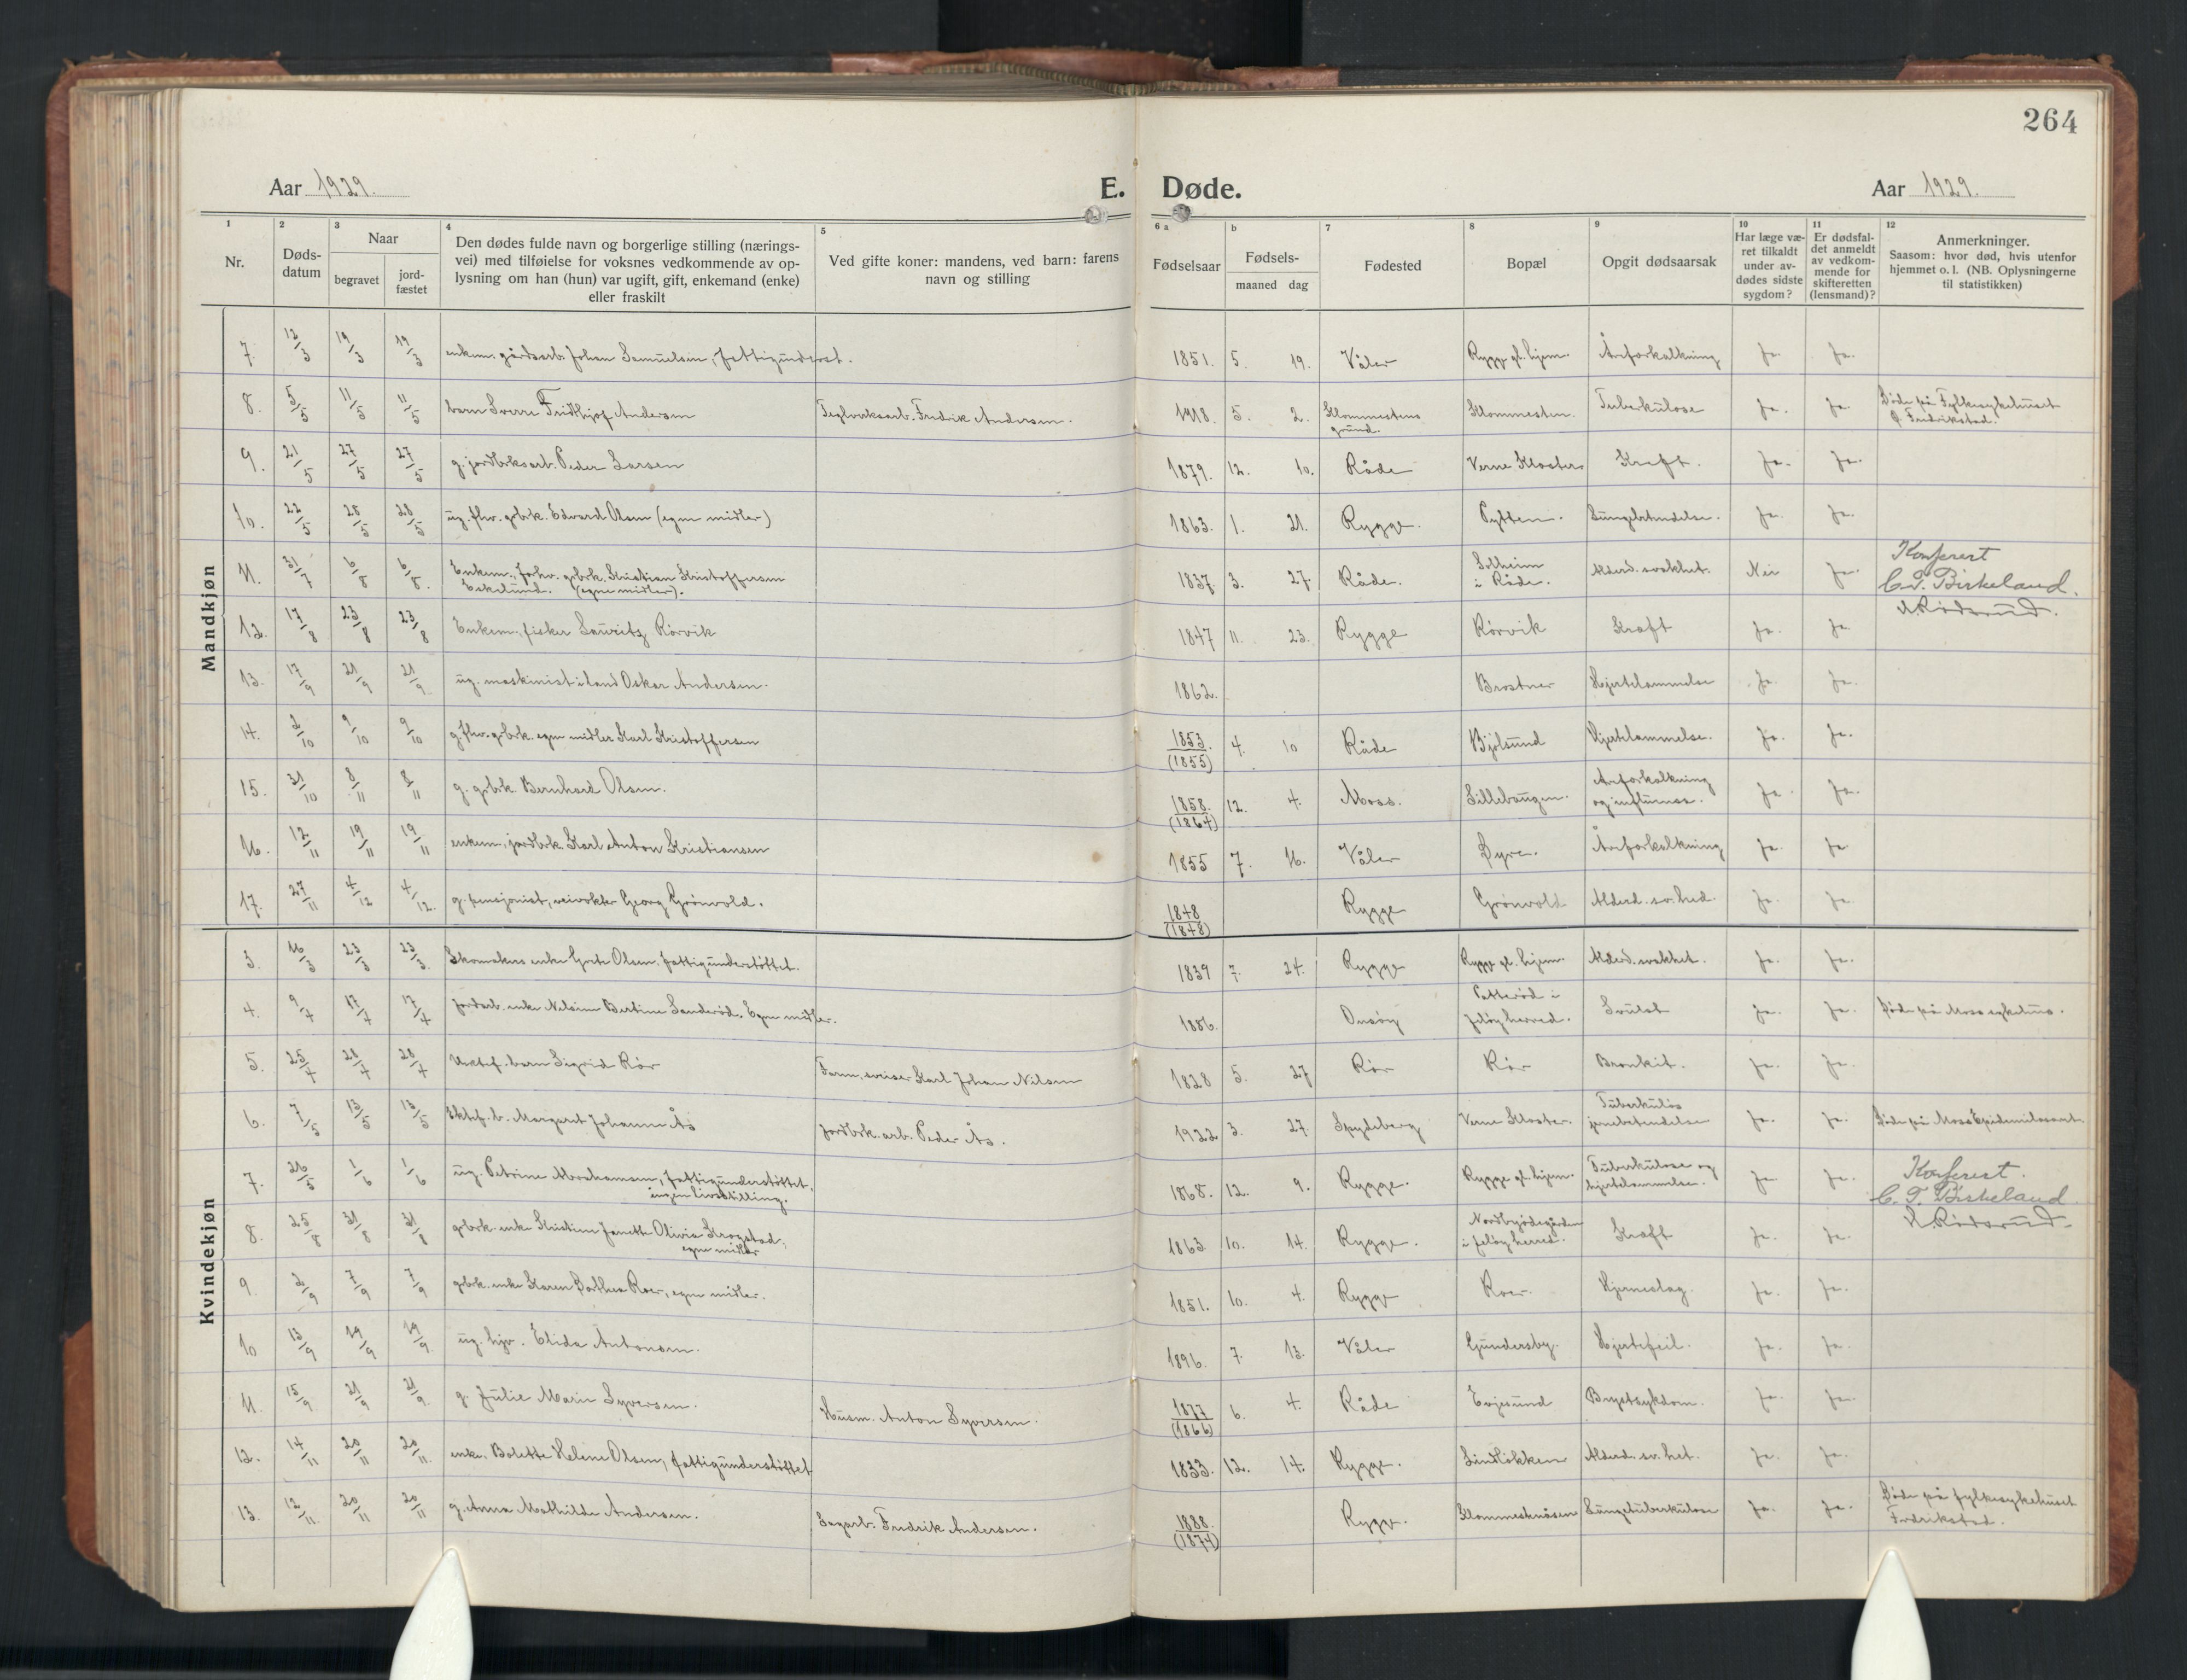 264
Aar 1929.
E. Døde.
Aar 1929.
1 Nr.
2 Døds-datum
3 Naar
begravet
jord-fæstet
4 Den dødes fulde navn og borgerlige stilling (nærings-
vei) med tilføielse for voksnes vedkommende av op-
lysning om han (hun) var ugift, gift, enkemand (enke)
eller fraskilt
5 Ved gifte koner: mandens, ved barn: farens
navn og stilling
6 a Fødselsaar
b Fødsels-
maaned dag
7 Fødested
8 Bopæl
9 Opgit dødsaarsak
10 Har læge væ-
ret tilkaldt
under av-
dødes sidste
sygdom?
11 Er dødsfal-
det anmeldt
av vedkom-
mende for
skifteretten
(lensmand)?
12 Anmerkninger.
Saasom: hvor død, hvis utenfor
hjemmet o. l. (NB. Oplysningerne
til statistikken)
Mandkjøn
7. 12/3 19/3 19/3 enkem. gårdsarb. Johan Samuelsen, fattigunderst. 1851. 5. 19. Våler Rygge gl. hjem. Åreforkalkning Ja. Ja.
8. 5/5 11/5 11/5 barn Sverre Fridthjof Andersen Teglverksarb. Fredrik Andersen. 1918. 5. 2. Klommestens grund. Klommesten. Tuberkulose Ja. Ja. Døde på Fylkessykehuset Fredrikstad.
9. 21/5 27/5 27/5 g. jordbrksarb. Peder Larsen 1879. 12. 10. Råde Verne Kloster Kreft. Ja. Ja.
10. 22/5 28/5 28/5 ug. fhv. grbrk. Edvard Olsen (egne midler) 1863. 1. 21. Rygge. Pytten. Lungebetendelse. Ja. Ja.
11. 31/7 6/8 6/8. Enkem., forhv. grbrk. Kristian Kristoffersen
Eskelund. (egne midler). 1837. 3. 27. Råde. Solheim i Råde. Alderd. svakhet. Nei Ja. Konferert
C. T. Birkeland.
12. 17/8 23/8 23/8 Enkem., fisker Lauritz Rørvik 1847 11. 23. Rygge Rørvik Kreft Ja. Ja. Rødsrud.
13. 17/9 21/9 21/9 ug. maskinist i land Oskar Andersen. 1862. Brostner Hjertelammelse Ja. Ja.
14. 2/10 9/10 9/10 g. fhv. grbrk. egne midler Karl Kristoffersen 1853. (1855) 4. 10 Råde Bjølsund Hjertelammelse. Ja. Ja.
15. 31/10 8/11 8/11 g. grbrk. Bernhard Olsen. 1858. (1864) 12. 4. Moss. Lillebaugen. Åreforkalkning og influensa. Ja. Ja.
16. 12/11 19/11 19/11 enkem., jordbrk. Karl Anton Kristiansen 1855 7. 16. Våler Øyre. Åreforkalkning Ja. Ja
17. 27/11 4/12 4/12. g. pensjonist, veivokter Georg Grønvold. 1848 (1848) Rygge Grønvold Alderd. sv.hed. Ja. Ja.
Kvindekjøn
3. 16/3 23/3 23/3 Skomakers enke Grete Olsen, fattigunderstøttet. 1839 7. 24. Rygge Rygge gl. hjem. Alderd. svakhet. Ja. Ja.
4. 9/4 17/4 17/4 Jordarb. enke Nelsine Bertine Sanderød. Egne midler. 1886. Onsøy Patterød i Jeløy herred. Svulst Ja. Ja. Døde på Moss sykehus.
5. 25/4 28/4 28/4 Uektef. barn Sigrid Rør Farm. sveiser Karl Johan Nilsen 1828 5. 27 Rør Rør Bronkit. Ja. Ja.
6. 7/5 13/5 13/5 Ektef. b. Margaret Johanne Ås Jordbrk. arb. Peder Ås. 1922 3. 27. Spydeberg Verne Kloster. Tuberkuløs Ja. Ja. Døde på Moss Epidemilasaret.
7. 26/5 1/6 1/6 ug. Petrine Abrahamsen, fattigunderstøttet,
ingen livsstilling. 1868. 12. 9. Rygge. Rygge gl. hjem. Tuberkulose og hjertelammelse. Ja. Ja. Konferert.
C. T. Birkeland
8. 25/8 31/8 31/8 grbrk. enke Kristine Janette Olivia Krogstad,
egne midler 1863 10. 14. Rygge. i Jeløy herred. Kreft Ja. Ja. Rødsrud.
9. 2/9 7/9 7/9 grbrk. enke Karen Dorthea Roer, egne midler. 1851. 10. 4. Rygge Roer. Hjerneslag. Ja. Ja.
10 13/9 19/9 19/9 ug. hjv. Elida Antonsen. 1896. 7. 13. Våler Gundersby. Hjertefeil. Ja. Ja.
11. 15/9 21/9 21/9. g. Julie Marie Syversen. Husm. Anton Syversen. 1877 (1866) 6. 4. Råde Evjesund Brystsykdom. Ja. Ja.
12. 14/11 20/11 20/11. enke, Bolette Helene Olsen, fattigunderstøttet 1833. 12. 14. Rygge. Lindløkken Alderd. sv. het. Ja. Ja.
13. 12/11 20/11 20/11 g. Anna Mathilde Andersen. Sagarb. Fredrik Andersen. 1888. (1874) Rygge. Klommesknåsen Lungetuberkulose Ja. Ja. Døde på fylkesykehuset
Fredrikstad.